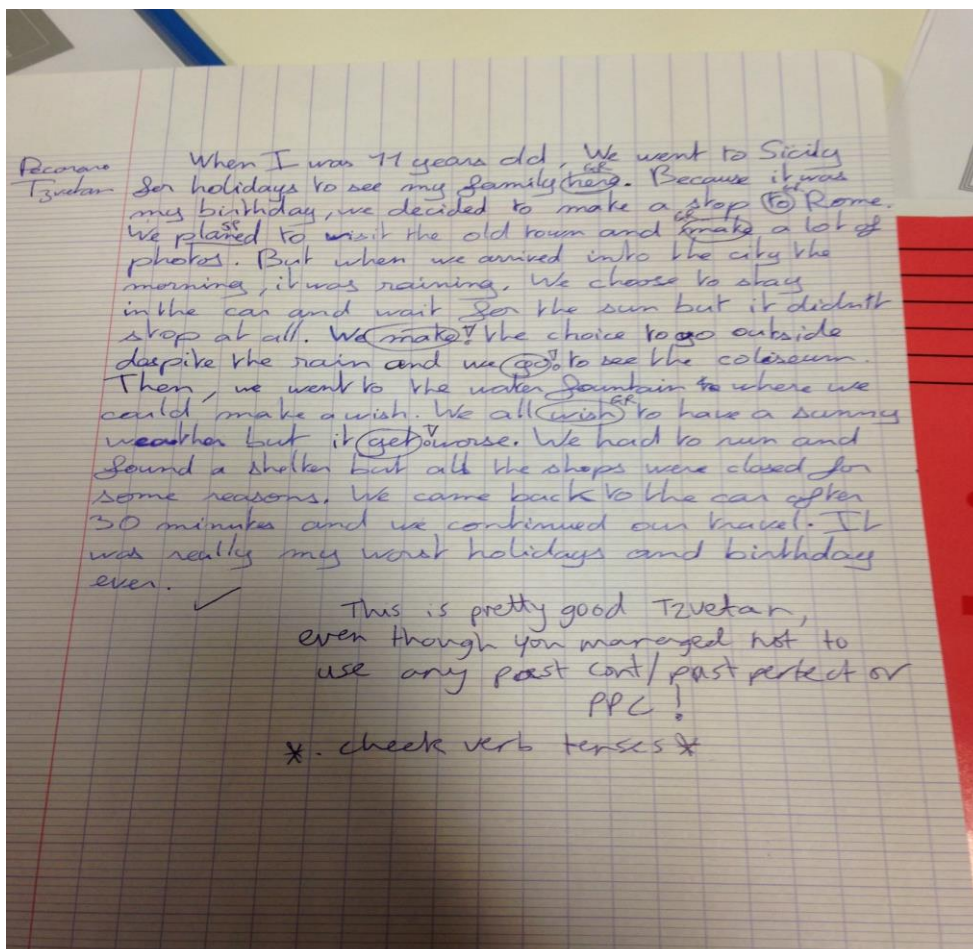 Pecoraro
Tzvetan
When I was 11 years old, We went to Sicily
GR
for holidays to see my family here. Because it was
GR
my birthday, we decided to make a stop to Rome.
SP GR
We planed to visit the old town and make a lot of
photos. But when we arrived into the city the
morning, it was raining. We choose to stay
in the car and wait for the sun but it didn't
V
stop at all. We make the choice to go outside
V
daspite the rain and we go to see the coliseum.
Then, we went to the water fountain where we
GR
could make a wish. We all wish to have a sunny
V
weather but it get worse. We had to run and
found a shelter but all the shops were closed for
some reasons. We came back to the car after
30 minutes and we continued our travel. It
was really my worst holidays and birthday
ever.
This is pretty good Tzvetan,
even though you managed not to
use any past cont/past perfect or
PPC!
*. check verb tenses *